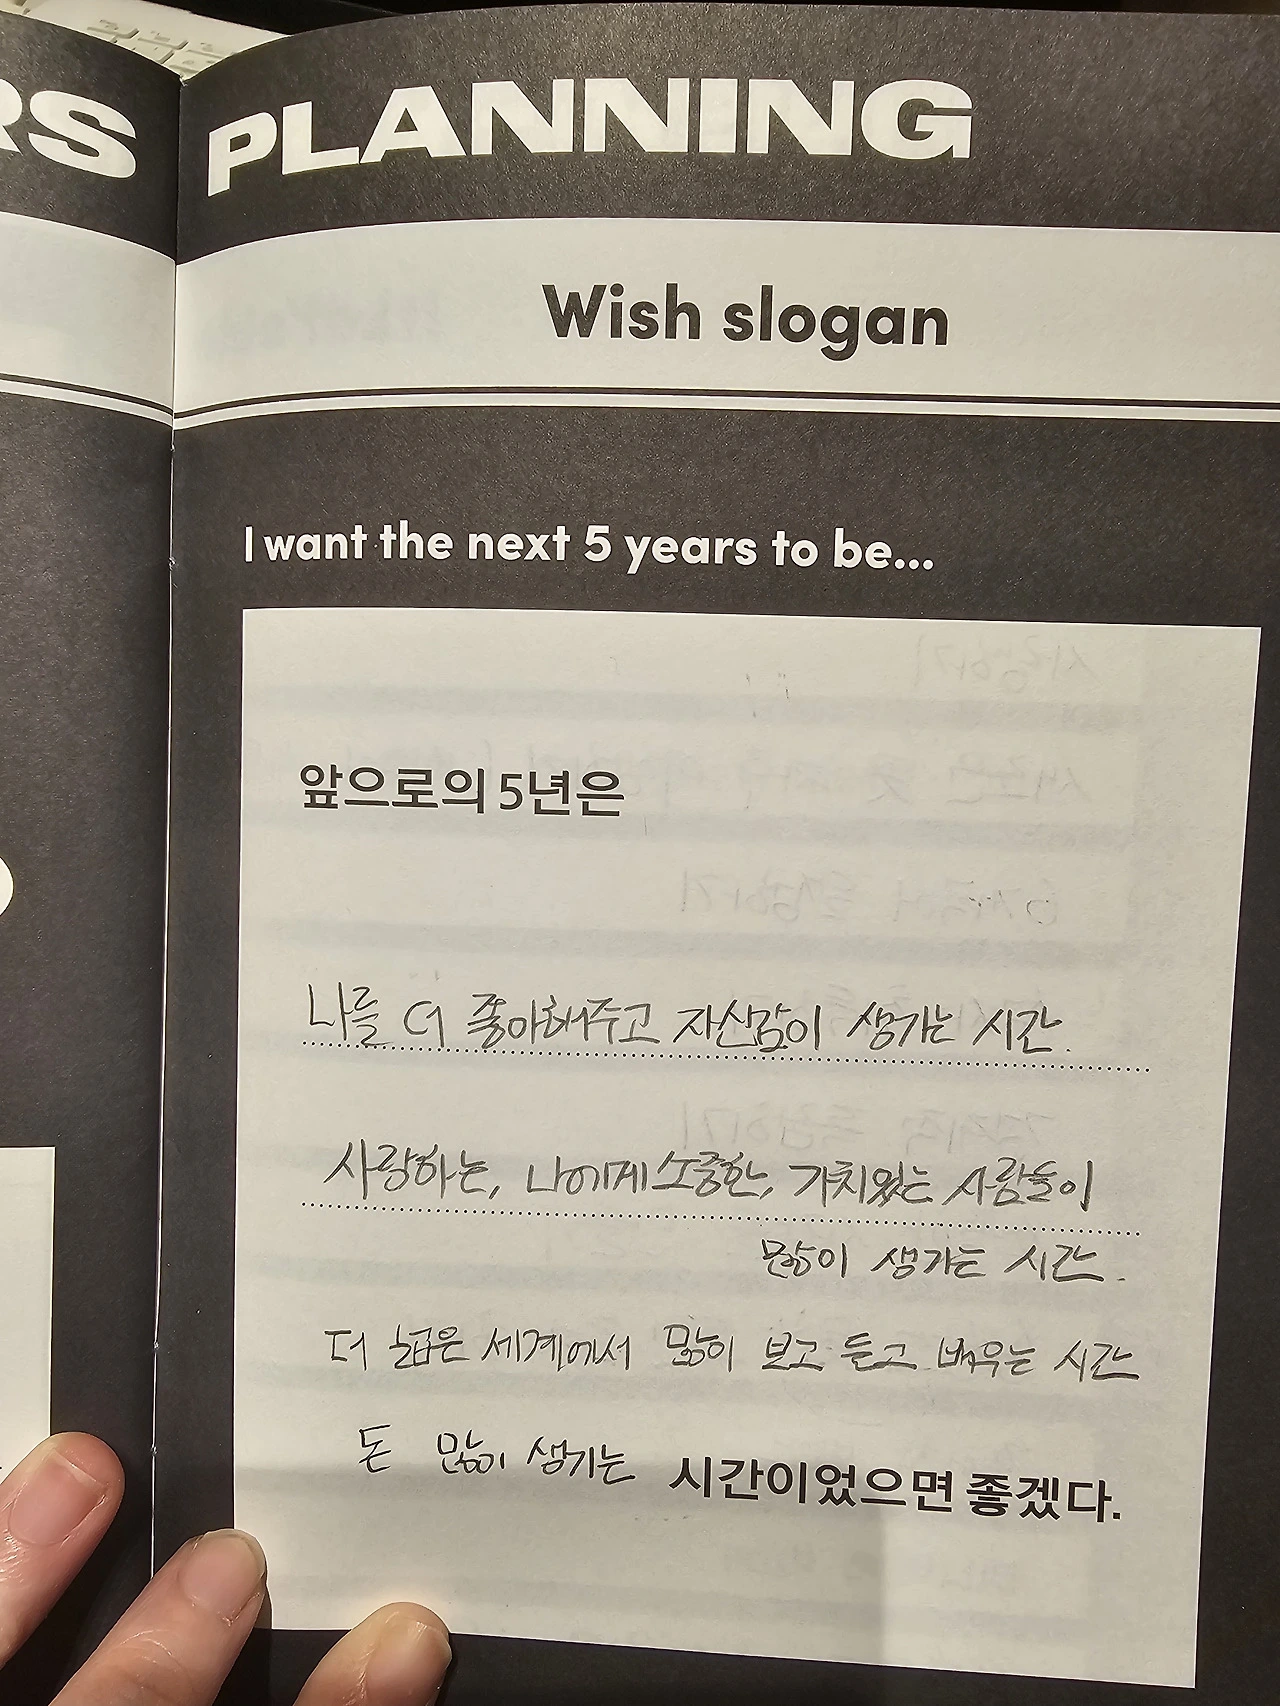 RS PLANNING
Wish slogan
I want the next 5 years to be...
앞으로의 5년은
나를 더 좋아해주고 자신감이 생기는 시간.
사랑하는, 나에게 소중한, 가치있는 사람들이
많이 생기는 시간.
더 넓은 세계에서 많이 보고 듣고 배우는 시간
돈 많이 생기는 시간이었으면 좋겠다.